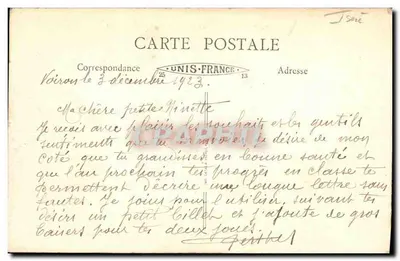 Isère
CARTE POSTALE
Correspondance UNIS-FRANCE Adresse
25 13
Voiron le 3 décembre 1923
Ma chère petite Ninette
Je reçois avec plaisir les souhaits et les gentils
sentiments que tu et je désire de mon
coté que tu grandisses en bonne santé et
que l'an prochain tes progrès en classe te
permettent d'écrire une longue lettre sans
fautes. Je joins pour l'utiliser, suivant tes
désirs un petit billet et j'ajoute de gros
baisers pour tes deux joues.
Berthe